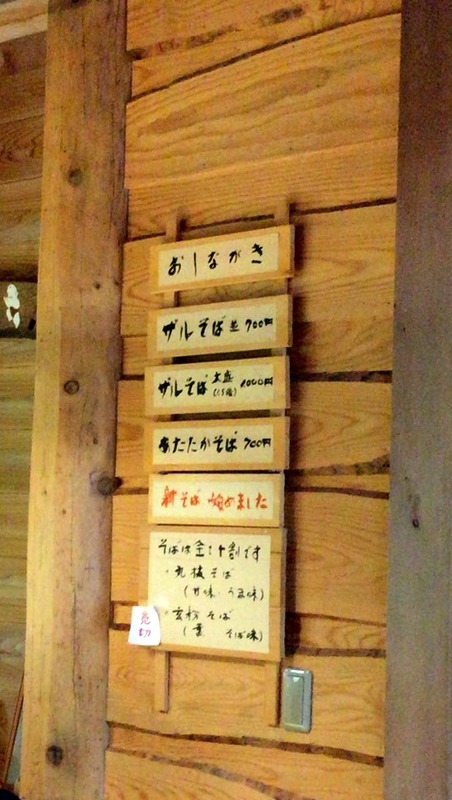 おしながき
ザルそば 並 700円
ザルそば 大盛 (1.5倍) 1000円
あたたかそば 700円
新そば 始めました
そばは全て十割です
・丸抜そば
(甘味・うま味)
・玄粉そば
( そば味)
売切